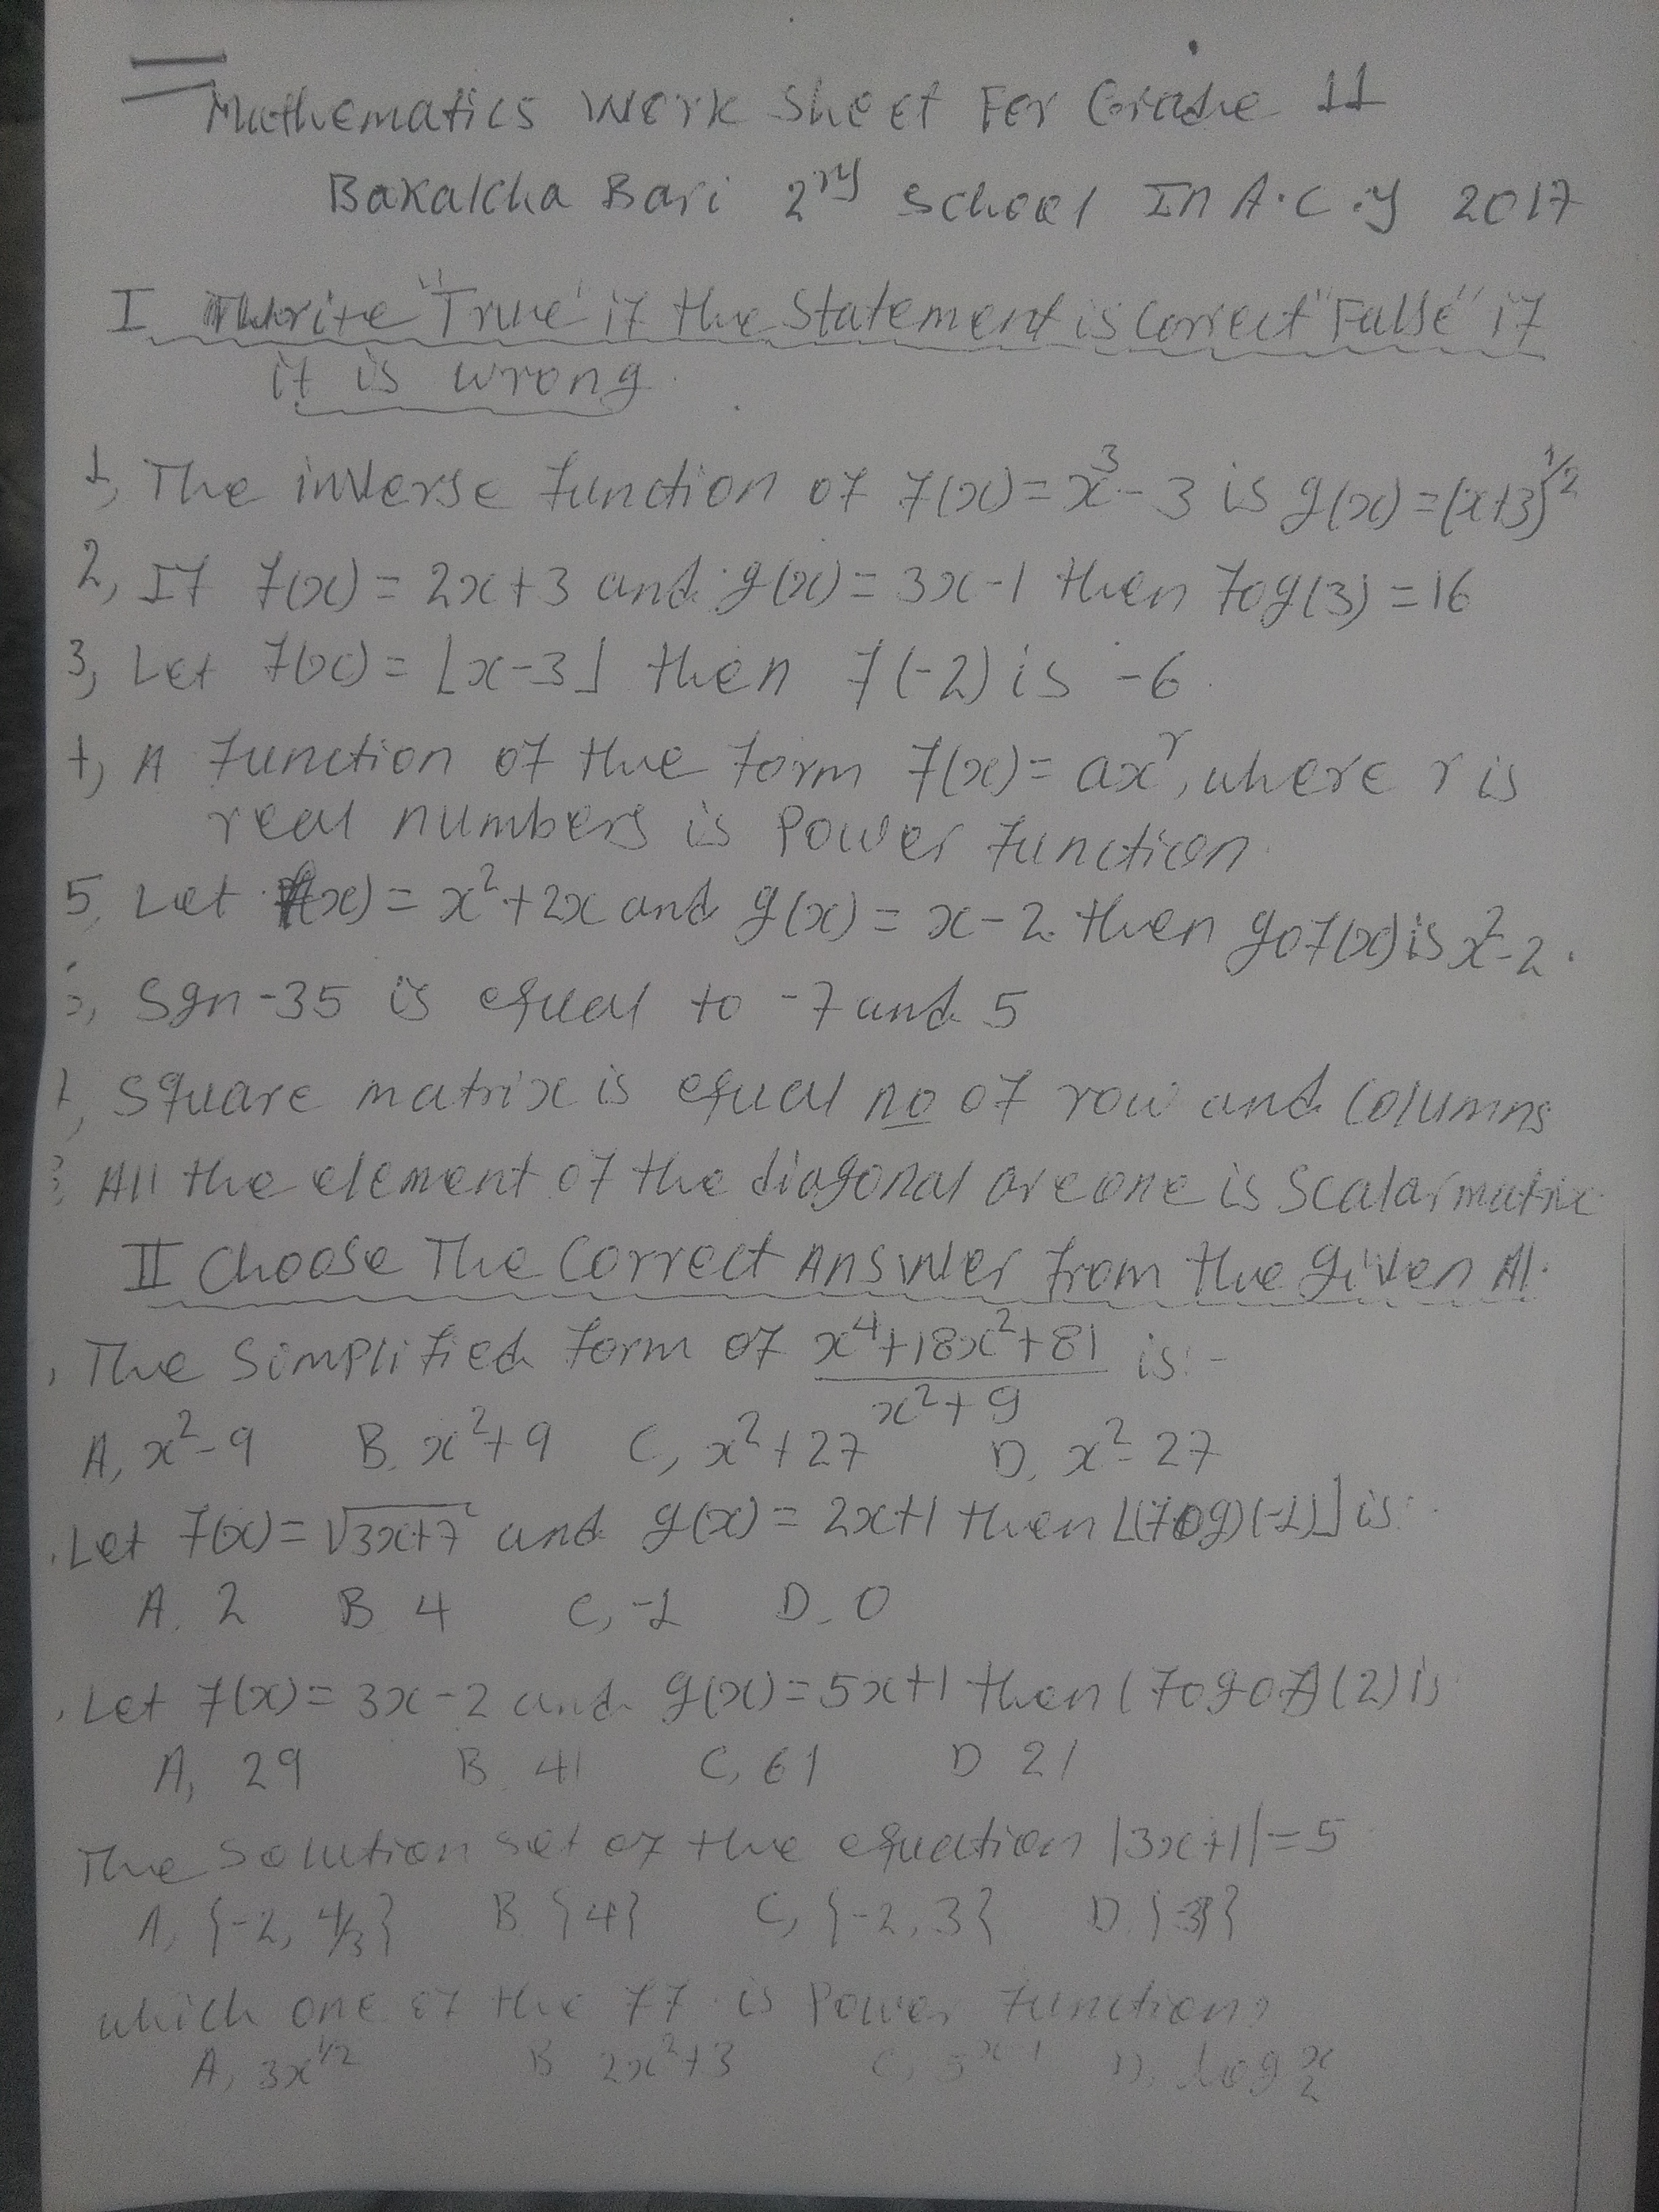 Mathematics Work Sheet For Grade 11
Bakalcha Bari 2ry School In A.C.Y 2017
I Write "True" if the Statement is Correct "False" if
it is wrong.
1, The inverse function of f(x) = x³ - 3 is g(x) = (x+3)^1/2
2, If f(x) = 2x+3 and g(x) = 3x-1 then fog(3) = 16
3, Let f(x) = ⌊x-3⌋ then f(-2) is -6.
4, A function of the form f(x) = ax^r, where r is
real numbers is Power function.
5, Let f(x) = x²+2x and g(x) = x-2 then gof(x) is x²-2.
6, Sgn -35 is equal to -7 and 5
7, Square matrix is equal no of row and columns
8, All the element of the diagonal are one is Scalar matrix
II Choose The Correct Answer from the given Al.
, The Simplified form of (x⁴+18x²+81)/(x²+9) is:-
A, x²-9 B. x²+9 C, x²+27 D. x²-27
. Let f(x) = √(3x+7) and g(x) = 2x+1 then ⌊(fog)(-1)⌋ is:
A. 2 B 4 C, -1 D. 0
. Let f(x) = 3x-2 and g(x) = 5x+1 then (fogof)(2) is
A, 29 B. 41 C, 61 D 21
The solution set of the equation |3x+1| = 5
A, {-2, 4/3} B. {4} C, {-2, 3} D. {-3}
which one of the ff. is Power function?
A, 3x^1/2 B 2x²+3 D, log x 2